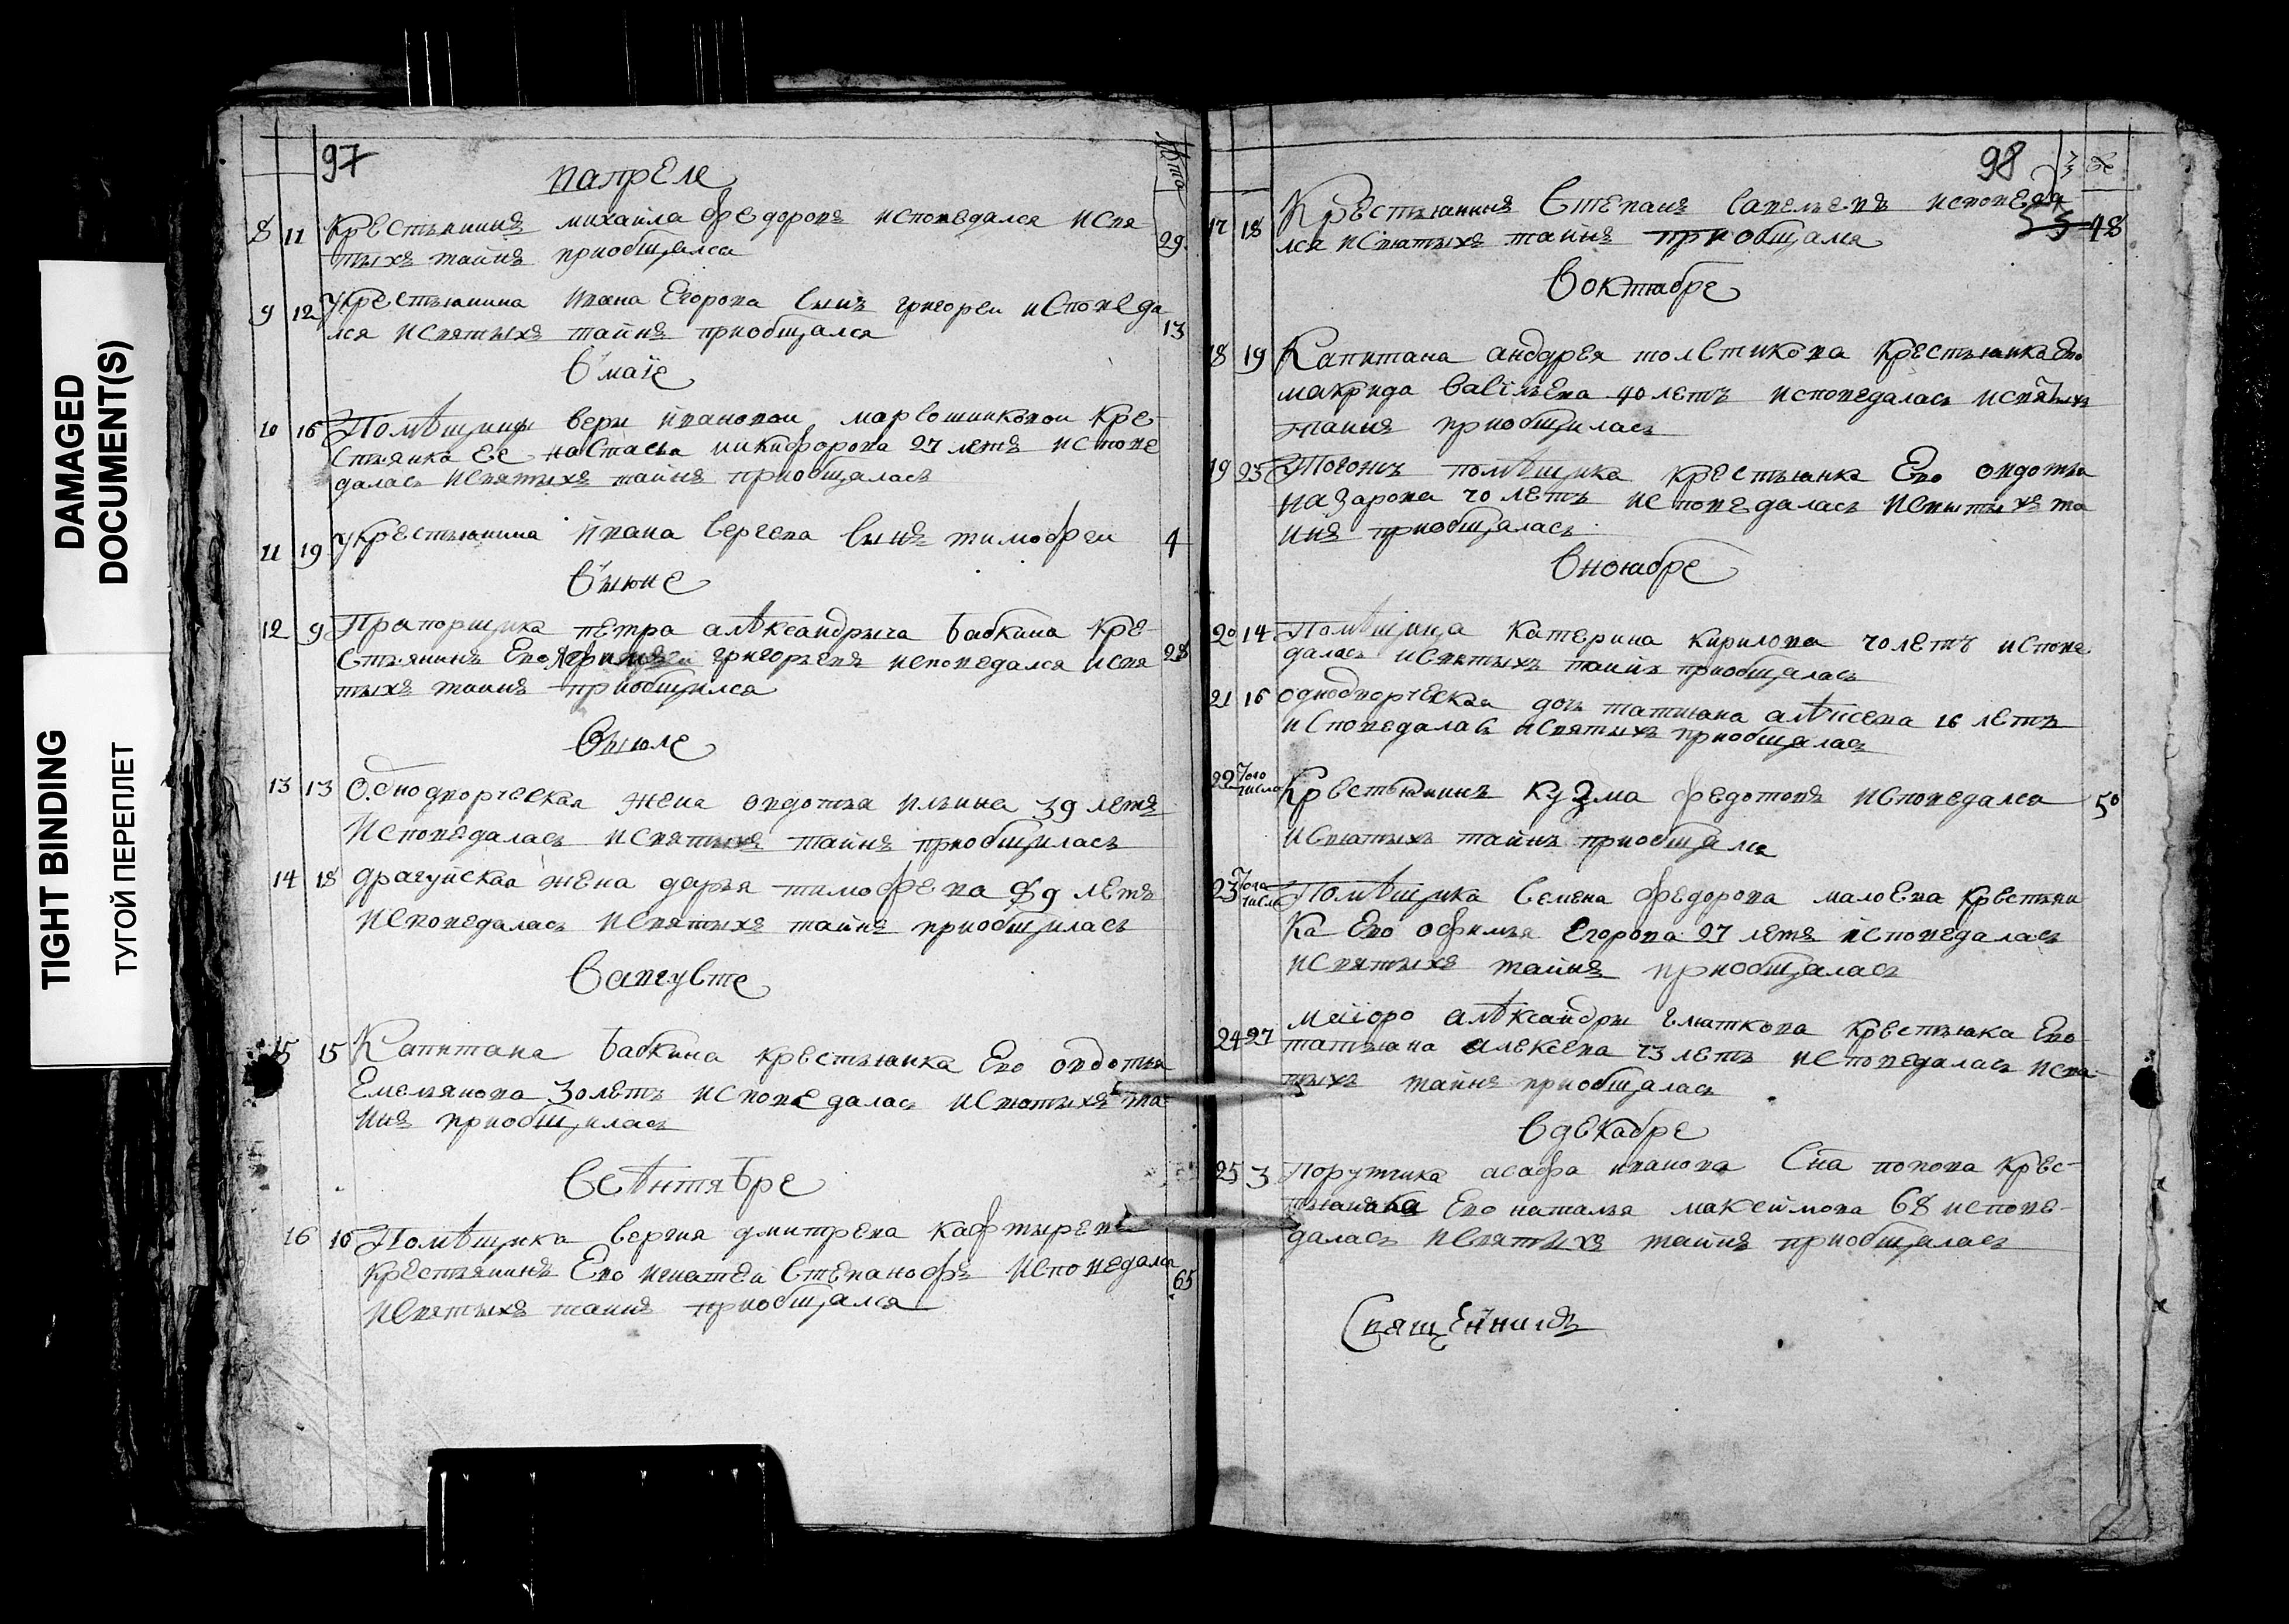 DAMAGED
DOCUMENT(S)
TIGHT BINDING
ТУГОЙ ПЕРЕПЛЕТ
97
лѣта
вапреле
8 11 Крестьянинъ михаила федоровъ исповедался исвя
тыхъ таинъ приобщался 29
9 12 Укрестьянина ивана Егорова сынъ григореи исповеда
лся исвятыхъ таинъ приобщался 13
вмаїе
10 16 Помѣщицы веры ивановои мартошинковои кре
стьянка Ее настасья никифорова 27 летъ испове
далась исвятыхъ таинъ приобщалась
11 19 Укрестьянина ивана сергева сынъ тимофеи 4
вьиюне
12 9 Прапорщика петра алѣксандрыча бабкина кре
стьянинъ Ево григорьевъ исповедался исвя 28
тыхъ таинъ приобщился
вьиюле
13 13 Однодворческая жена овдотья ильина 39 летъ
исповедалась исвятыхъ таинъ приобщилась
14 18 драгунская жена дарья тимофева 89 летъ
исповедалась исвятыхъ таинъ приобщилась
вавгусте
15 15 Капитана бабкина крестьянка Ево овдотья
Емельянова 30 летъ исповедалась исвятыхъ та
инъ приобщилась
всеѣнтябре
16 10 Помѣщика сергия дмитрева кафтырева
крестьянинъ Ево игнатеи степанофъ исповедалса
исвятыхъ таинъ приобщался 65
98
17 18 Крестьянинъ степанъ савельевъ исповеда
лся исвятыхъ таинъ приобщался 48
воктябре
18 19 Капитана андрея толстикова крестьянка Ево
макрида васильева 40 летъ исповедалась исвятыхъ
таинъ приобщилась
19 25 Тогожъ помѣщика крестьянка Ево овдотья
назарова 70 летъ исповедалась исвятыхъ та
инъ приобщалась
вноябре
20 14 Помѣщица катерина кирилова 70 летъ испове
далась исвятыхъ таинъ приобщалась
21 16 однодворческая дочь татияна алѣксева 16 летъ
исповедалась исвятыхъ приобщалась
22 того число Крестьянинъ кузма федотовъ исповедался 50
исвятыхъ таинъ приобщался
23 того числа Помѣщика семена федорова малоева крестьян
ка Ево офимья Егорова 27 летъ исповедалась
исвятыхъ таинъ приобщалась
24 27 маиоро алѣксандры глоткова крестьянка Ево
татьяна алексева 73 летъ исповедалась исвя
тыхъ таинъ приобщалась
вдекабре
25 3 порутчика асафа иванова сна попова крес
тьянька Ево наталья максимова 68 испове
далась исвятыхъ таинъ приобщалась
Священникъ